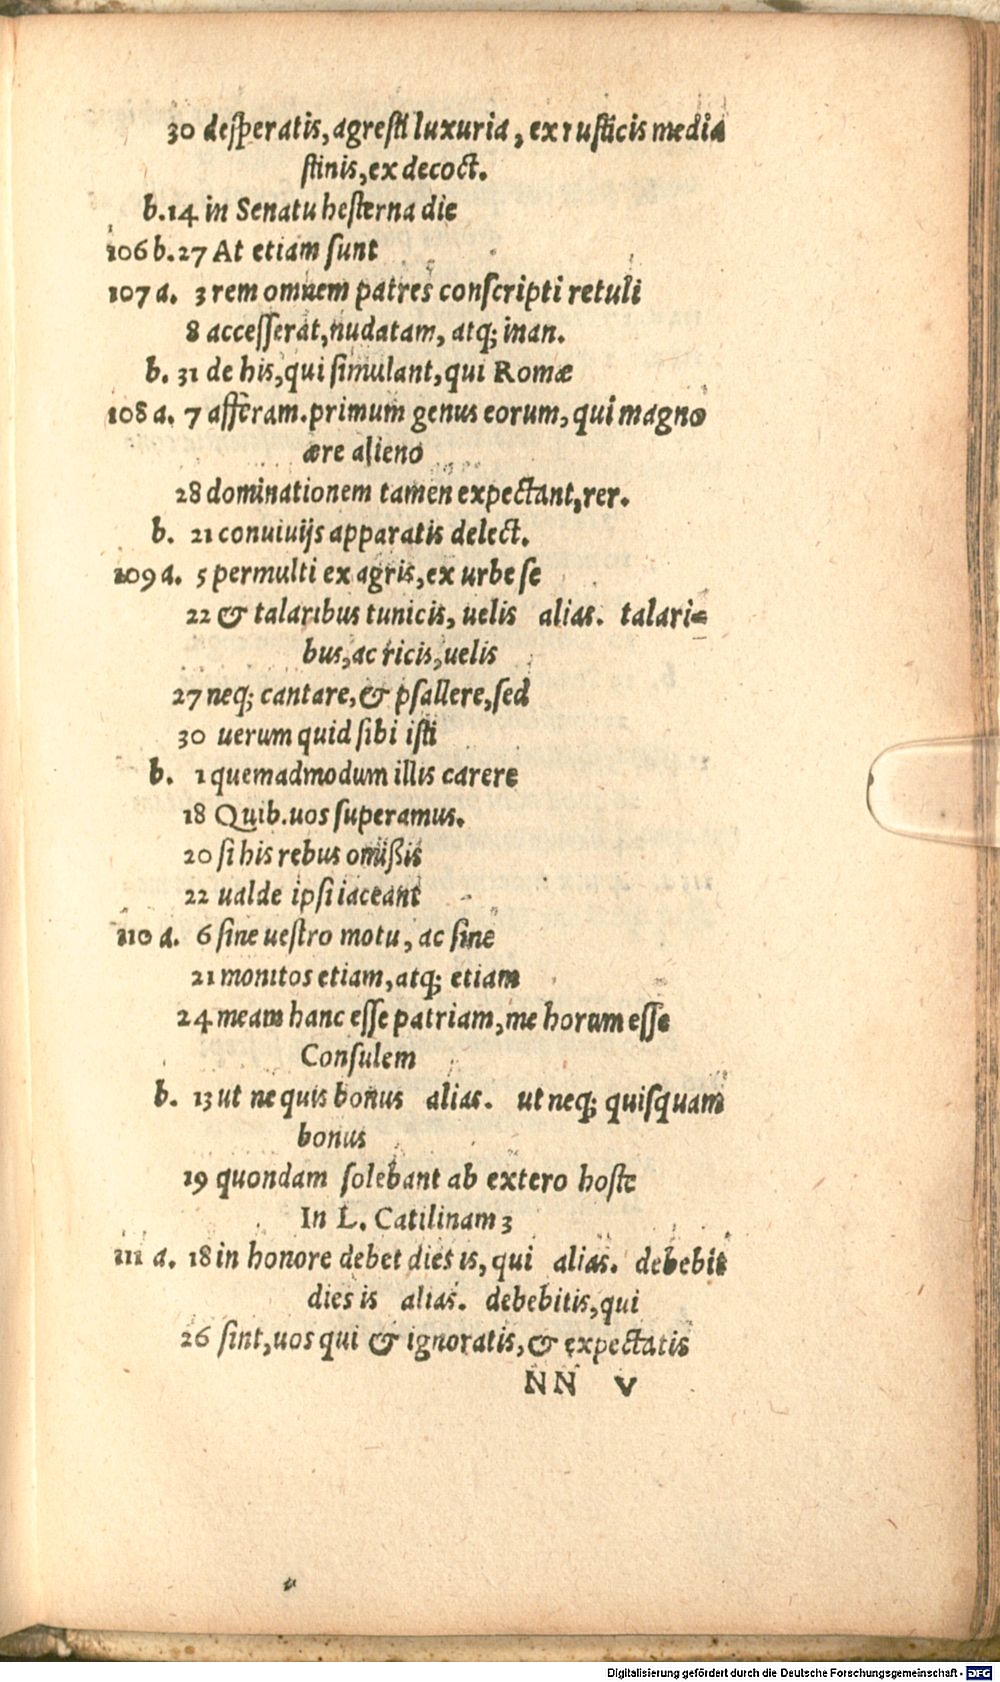 30 desperatis, agresti luxuria, ex rusticis media
stinis, ex decoct.
b. 14 in Senatu hesterna die
106 b. 27 At etiam sunt
107 a. 3 rem omnem patres conscripti retuli
8 accesserat, nudatam, atq; inan.
b. 31 de his, qui simulant, qui Romæ
108 a. 7 afferam. primum genus eorum, qui magno
ære alieno
28 dominationem tamen expectant, rer.
b. 21 conuiuijs apparatis delect.
109 a. 5 permulti ex agris, ex urbe se
22 & talaribus tunicis, uelis alias. talari=
bus, ac ricis, uelis
27 neq; cantare, & psallere, sed
30 uerum quid sibi isti
b. 1 quemadmodum illis carere
18 Quib. uos superamus.
20 si his rebus omißis
22 ualde ipsi iaceant
110 a. 6 sine uestro motu, ac sine
21 monitos etiam, atq; etiam
24 meam hanc esse patriam, me horum esse
Consulem
b. 13 ut ne quis bonus alias. ut neq; quisquam
bonus
19 quondam solebant ab extero hoste
In L. Catilinam 3
111 a. 18 in honore debet dies is, qui alias. debebit
dies is alias. debebitis, qui
26 sint, uos qui & ignoratis, & expectatis
NN v
Digitalisierung gefördert durch die Deutsche Forschungsgemeinschaft - DFG